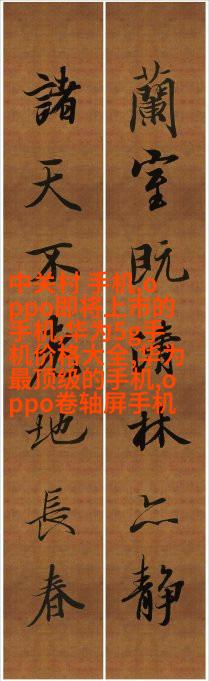 蘭室既清林亦静
諸天不地長春
中关村 手机,o
ppo即将上市的
手机,华为5g手
机价格大全,华为
最顶级的手机,o
ppo卷轴屏手机